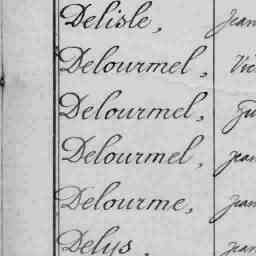 Delisle, Jean
Delourmel, Vic
Delourmel,
Delourmel, Jean
Delourme, Jean
Delys, Jean